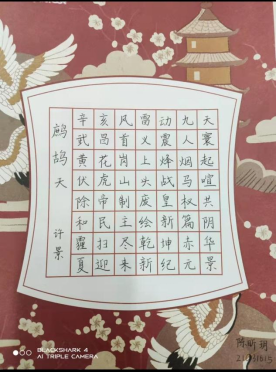 鹧鸪天
许景
辛亥风雷动九天
武昌首义震人寰
黄花岗上烽烟起
伏虎山头战马喧
除帝制废皇权共
和民主绘新篇阴
霾扫尽乾坤赤华
夏迎来新纪元景
BLACKSHARK 4
AI TRIPLE CAMERA